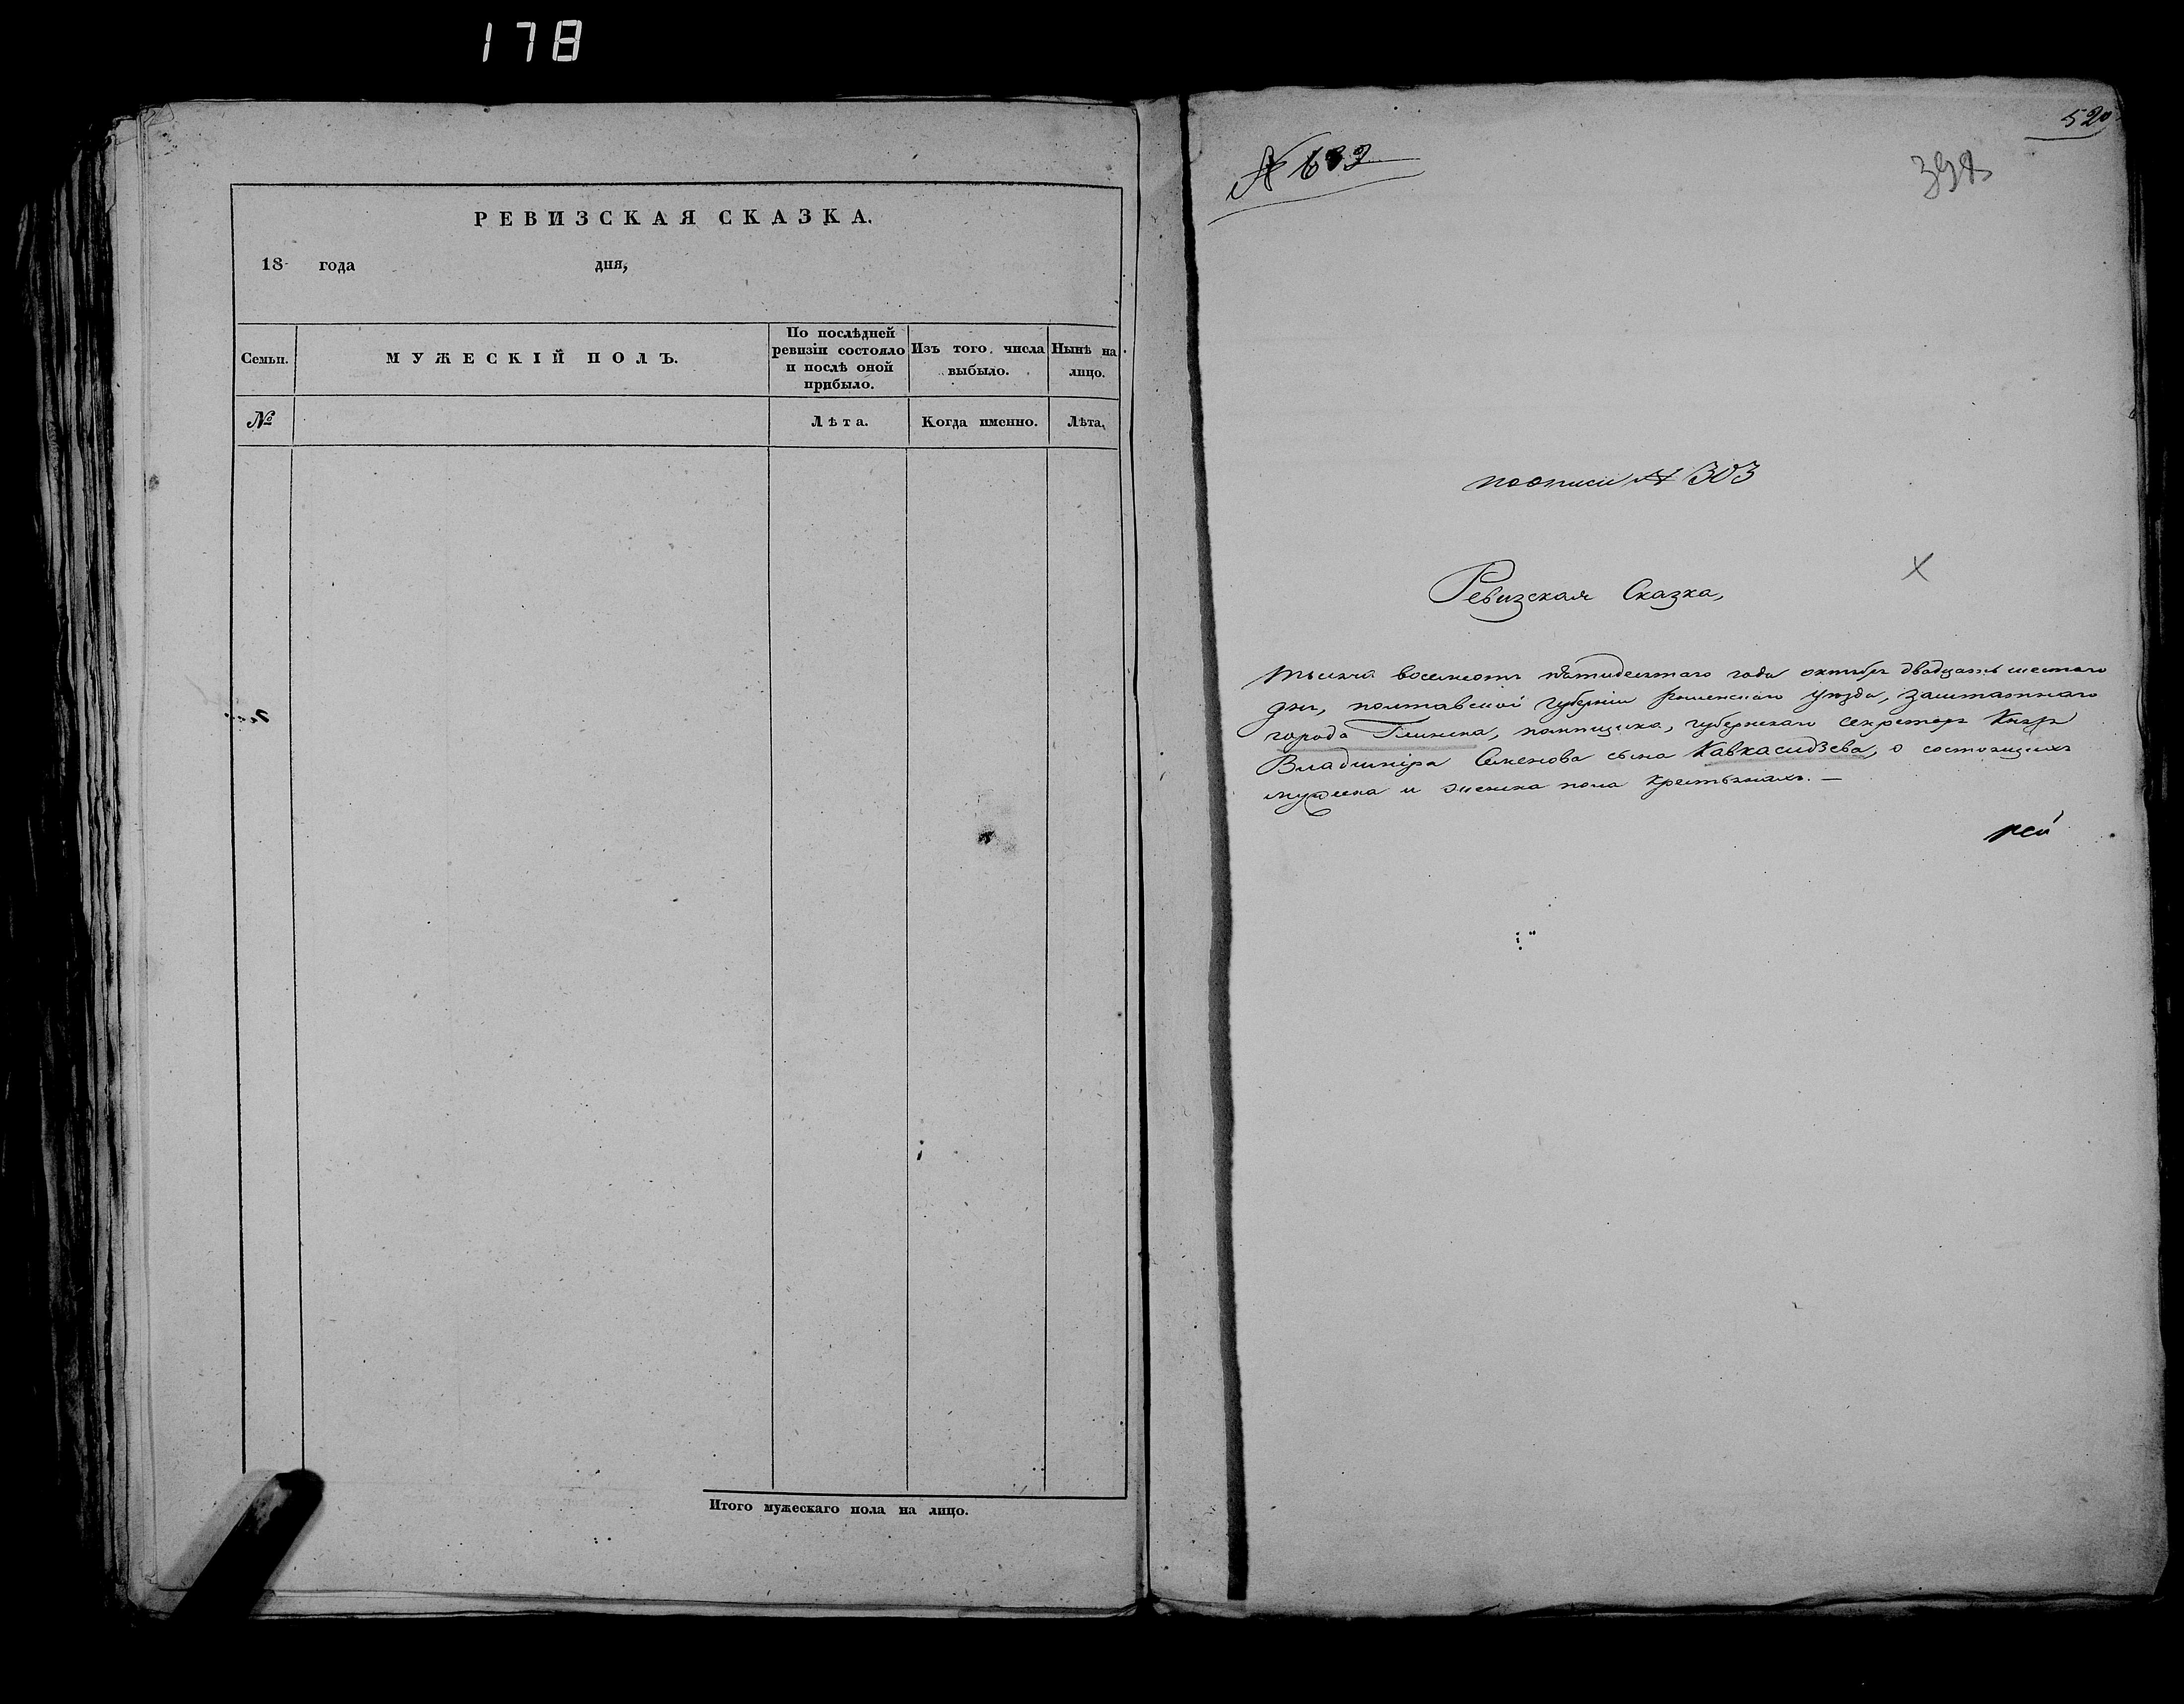 178
РЕВИЗСКАЯ СКАЗКА.
18 года дня,
Семьи.
МУЖЕСКІЙ ПОЛЪ.
По послѣдней ревизіи состояло и послѣ оной прибыло.
Изъ того числа выбыло.
Нынѣ на лицо.
№
Лѣта.
Когда именно.
Лѣта.
Итого мужескаго пола на лицо.
520
по описи № 303
Ревизская Сказка,
тысяча восемсотъ пятидесятаго года октября двадцать шестаго
дня, полтавской губерніи роменскаго уѣзда, заштатнаго
города Глинска, помѣщика, губернскаго секретаря Князя
Владиміра Семенова сына Кавкасидзева, о состоящихъ
мужеска и женска пола крестьянахъ. —